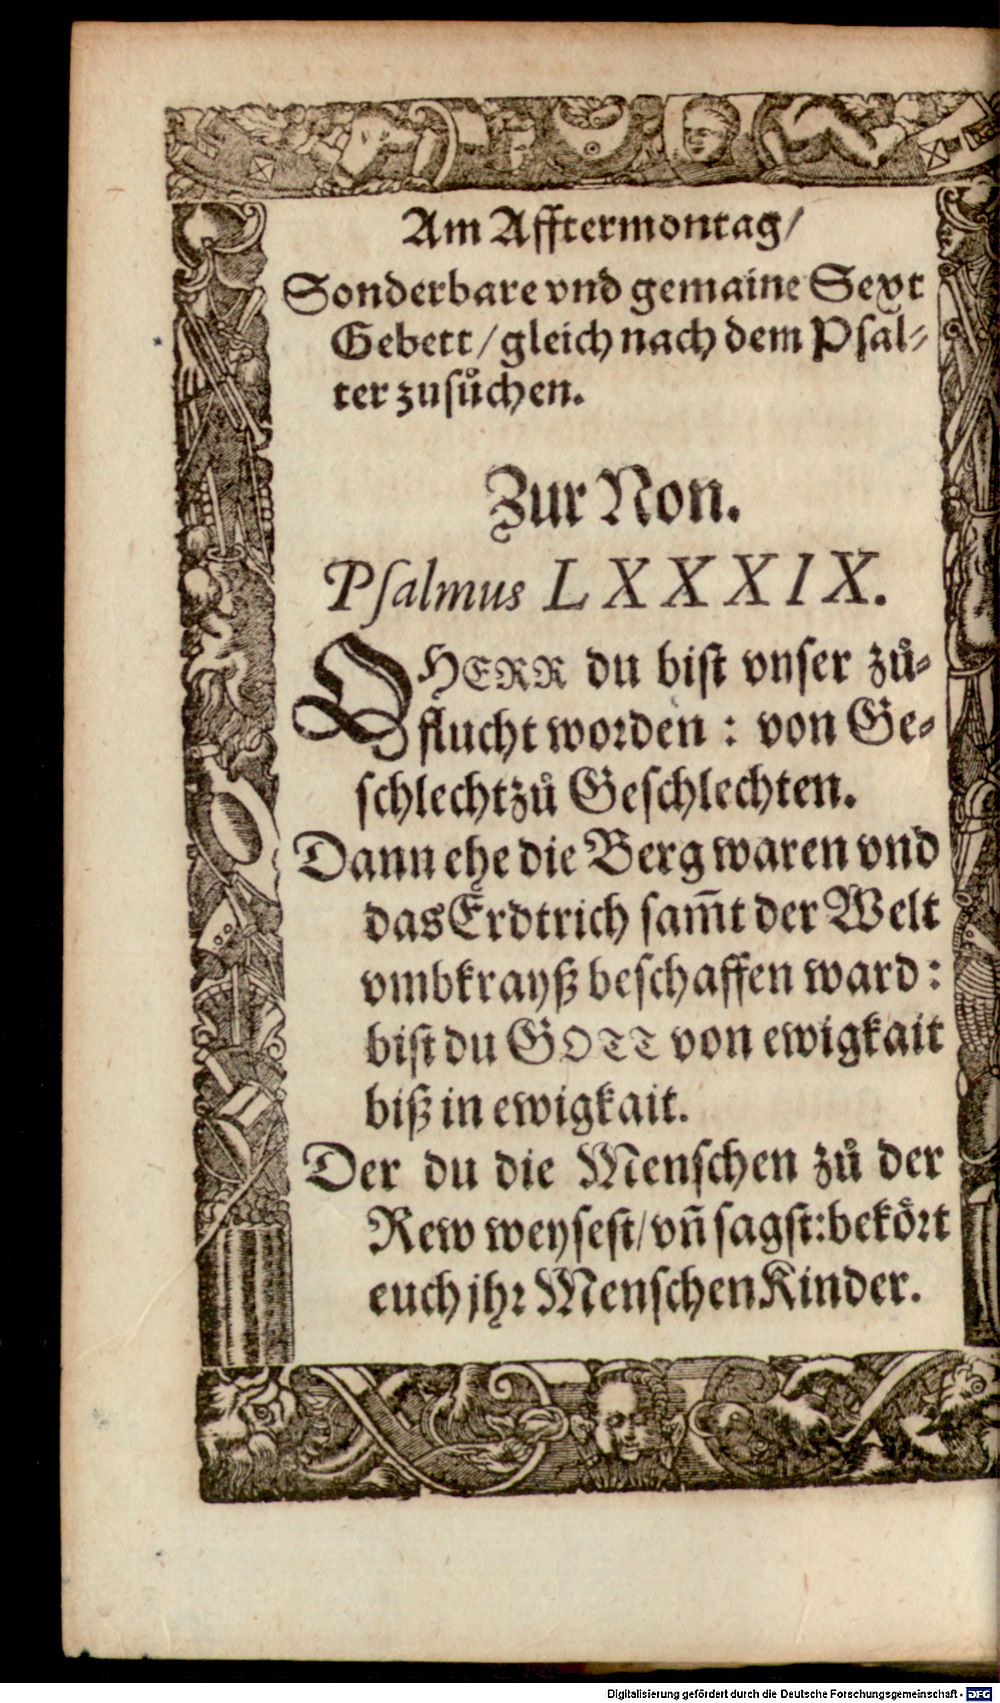 Am Afftermontag/
Sonderbare vnd gemaine Sext
Gebett/gleich nach dem Psal-
ter zusůchen.
Zur Non.
Psalmus LXXXIX.
O HERR du bist vnser zů-
flucht worden : von Ge-
schlecht zů Geschlechten.
Dann ehe die Berg waren vnd
das Erdtrich sam̃t der Welt
vmbkrayß beschaffen ward :
bist du GOTT von ewigkait
biß in ewigkait.
Der du die Menschen zů der
Rew weysest/vñ sagst:bekoͤrt
euch jhr Menschen Kinder.
Digitalisierung gefördert durch die Deutsche Forschungsgemeinschaft - DFG